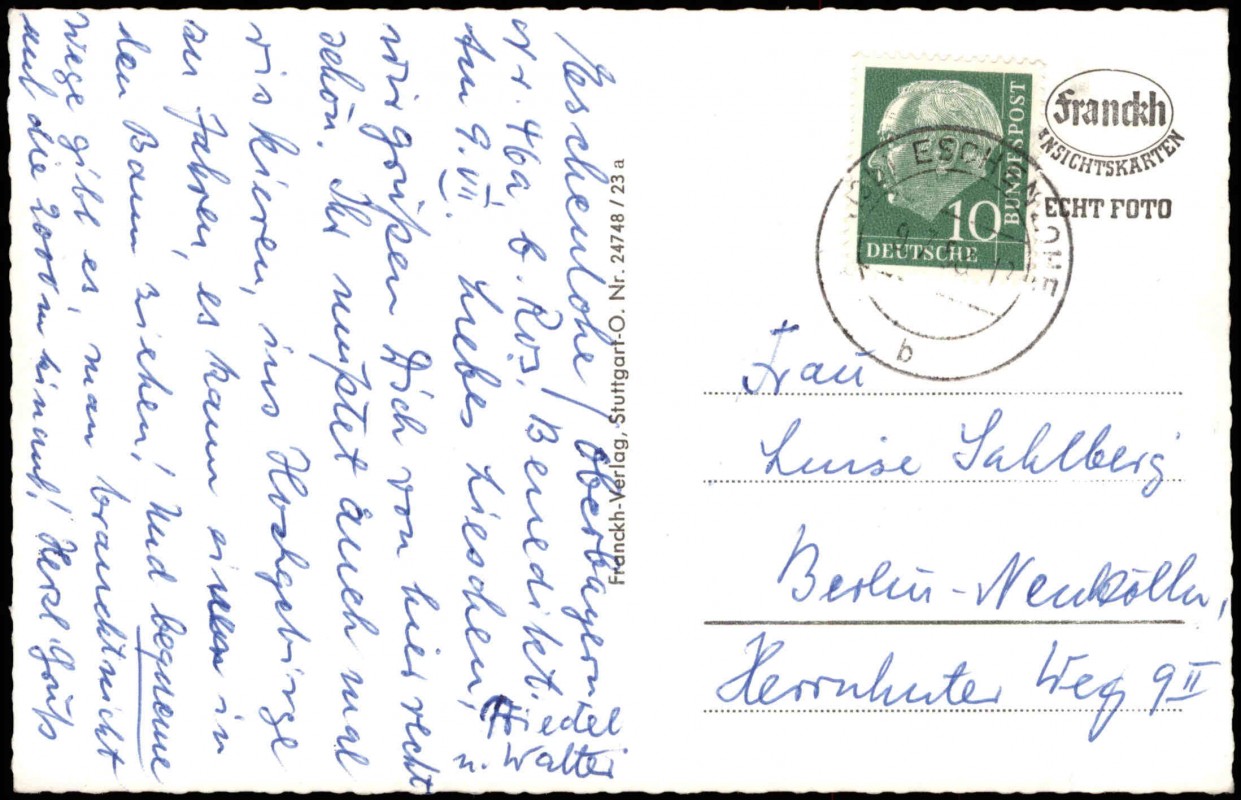 Eschenlohe/Oberbayern
Nr. 46a b. Ros. Benedikt.
Am 9. VI. Liebes Lieschen,
wir grüßen Dich von hier recht
schön. Ihr müßtet auch mal
riskieren, ins Hochgebirge
zu fahren, es kann einen in
den Bann ziehen! Und bequeme
Wege gibt es, man braucht nicht
auf die 2000 m hinauf! Herzl. Grüße
Friedel
u. Walter
Franckh-Verlag, Stuttgart-O. Nr. 24748 / 23 a
Franckh
ANSICHTSKARTEN
ECHT FOTO
BUNDESPOST
10
DEUTSCHE
ESCHENLOHE
b
Frau
Luise Sahlberg
Berlin-Neukölln,
Herrnhuter Weg 9 II